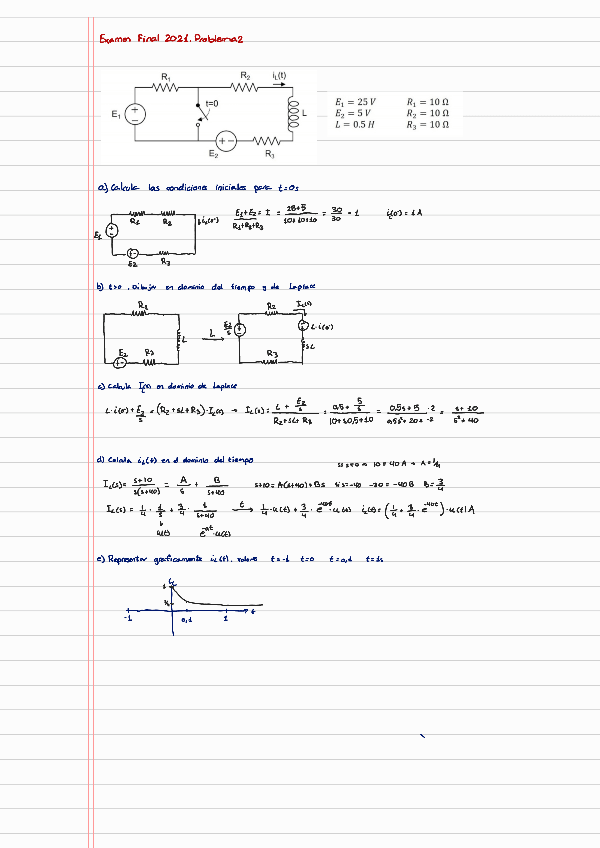 Examen Final 2021. Problema 2
R₁ R₂ iL(t)
t=0
E₁ L
E₂ R₃
E₁ = 25 V R₁ = 10 Ω
E₂ = 5 V R₂ = 10 Ω
L = 0.5 H R₃ = 10 Ω
a) Calcula las condiciones iniciales para t=0s
R₁ R₂ iL(0⁻)
E₁
E₂ R₃
(E₁+E₂)/(R₁+R₂+R₃) = I = (25+5)/(10+10+10) = 30/30 = 1 i(0⁻) = 1 A
b) t>0. Dibujar en dominio del tiempo y de Laplace
R₂ L E₂ R₃
L →
R₂ IL(s) E₂/s L·i(0⁻) sL R₃
c) Calcula IL(s) en dominio de Laplace
L·i(0⁻) + E₂/s = (R₂+sL+R₃)·IL(s) → IL(s) = (L + E₂/s)/(R₂+sL+R₃) = (0,5 + 5/s)/(10+s0,5+10) = (0,5s+5)/(0,5s²+20s) ·2/·2 = (s+10)/(s²+40)
d) Calcula iL(t) en el dominio del tiempo
si s=0 → 10=40A → A=1/4
IL(s) = (s+10)/(s(s+40)) = A/s + B/(s+40) s+10 = A(s+40)+Bs si s=-40 -30=-40B B=3/4
IL(s) = 1/4 · 1/s + 3/4 · 1/(s+40) t → 1/4·u(t) + 3/4·e^(-40t)·u(t) iL(t) = (1/4 + 3/4·e^(-40t))·u(t) A
u(t) e^(-at)·u(t)
e) Representar gráficamente iL(t). valores t=-1 t=0 t=0,1 t=1s
iL
1
1/4
-1 0,1 1 t